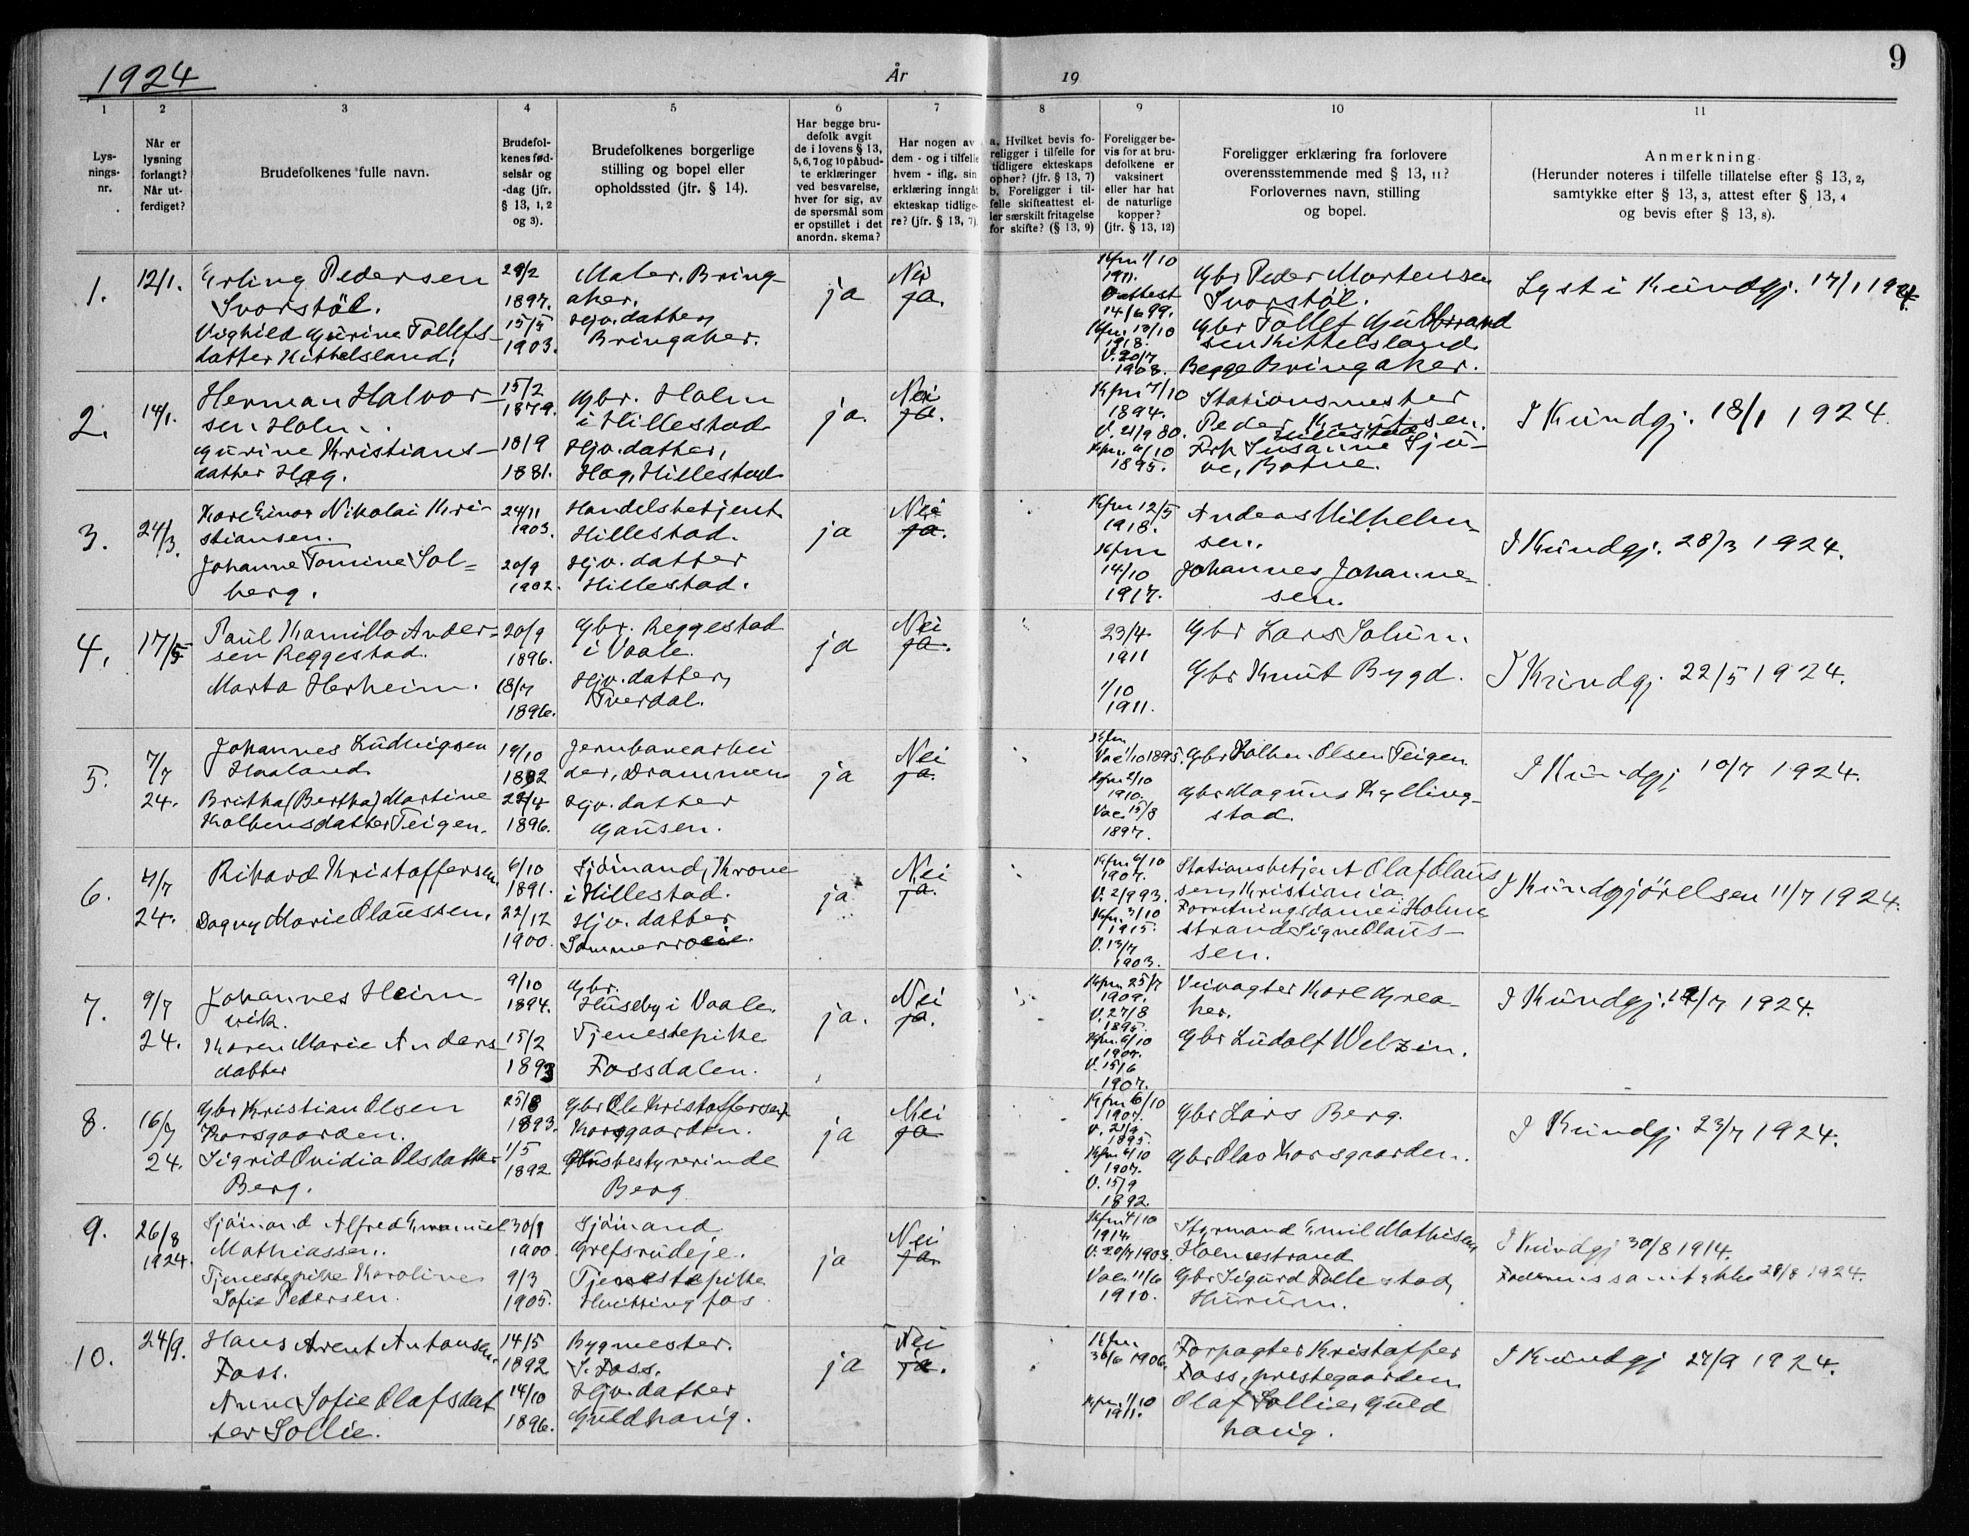 1924
År
19
9
1
2
3
4
5
6
7
8
9
10
11
Lys-
nings-
nr.
Når er
lysning
forlangt?
Når ut-
ferdiget?
Brudefolkenes fulle navn.
Brudefol-
kenes fød-
selsår og
-dag (jfr.
§ 13, 1, 2
og 3).
Brudefolkenes borgerlige
stilling og bopel eller
opholdssted (jfr. § 14).
Har begge bru-
defolk avgit
de i lovens § 13,
5, 6, 7 og 10 påbud-
te erklæringer
ved besvarelse,
hver for sig, av
de spørsmål som
er opstillet i det
anordn. skema?
Har nogen av
dem - og i tilfelle
hvem - iflg. sin
erklæring inngåt
ekteskap tidlige-
re? (jfr. § 13, 7).
a. Hvilket bevis fo-
religger i tilfelle for
tidligere ekteskaps
ophør? (jfr. § 13, 7)
b. Foreligger i til-
felle skifteattest el-
ler særskilt fritagelse
for skifte? (§ 13, 9)
Foreligger be-
vis for at bru-
defolkene er
vaksinert
eller har hat
de naturlige
kopper?
(jfr. § 13, 12)
Foreligger erklæring fra forlovere
overensstemmende med § 13, 11?
Forlovernes navn, stilling
og bopel.
Anmerkning
(Herunder noteres i tilfelle tillatelse efter § 13, 2,
samtykke efter § 13, 3, attest efter § 13, 4
og bevis efter § 13, 8).
1.
12/1.
Erling Pedersen
Svorstöl.
Vighild Gurine Tollefs-
datter Kittelsland.
1897.
15/5
1903.
Maler. Bring-
aker.
Hjv. datter,
Bringaker.
ja
Nei
ja.
Kfm 1/10
1911.
V attest
14/6 99.
Kfm. 13/10
1918.
V. 20/7
1908.
Gbr Peder Mortensen
Svorstöl.
Gbr Tollef Gulbrand
sen Kittelsland
Begge Bringaker.
Lyst i Kundgj. 17/1 1924.
2.
14/1.
Herman Halvor-
sen Holm.
Gurine Kristians-
datter Hag.
15/2
1879.
18/9
1881.
Gbr. Holm
i Hillestad
Hjv. datter,
Hag, Hillestad
ja.
Nei
ja.
Kfm 7/10
1894.
V. 21/9 80.
1895.
Stationsmester
Peder Knutsen.
Hillestad
Frk Susanne Tju-
ve, Botne.
I Kundgj. 18/1 1924.
3.
24/3.
Karl Einar Nikolai Kri-
stiansen.
Johanne Tomine Sol=
berg.
24/11
1903.
20/9
1902.
Handelsbetjent
Hillestad.
Hjv. datter
Hillestad.
ja
Nei
ja.
Kfm 12/5
1918.
Kfm
14/10
1917.
Anders Wilhelm-
sen.
Johannes Johanne-
sen.
I Kundgj. 28/3 1924.
4.
17/5
Paul Kamillo Ander-
sen Reggestad.
Marta Herheim.
20/9
1896.
18/7
1896.
Gbr. Reggestad
i Vaale.
Hjv. datter,
Tverdal.
ja
Nei
ja.
23/4
1911
1/10
1911.
Gbr Lars Solum.
Gbr Knut Bygd.
I Kundgj. 22/5 1924.
5.
7/7
24.
Johannes Ludvigsen
Haaland.
Britha (Bertha) Martine
Kolbensdatter Teigen.
19/10
1896.
Jernbanearbei
der, Drammen
Hjv. datter
Gausen.
ja
Nei
ja.
Kfm
Vac 1/10 1895.
Kfm 2/10
1910.
Vac. 15/8
1897.
Gbr Kolben Olsen Teigen
Gbr Magnus Kylling-
stad.
I Kundgj 10/7 1924.
6.
4/7
24.
Rikard Kristoffersen
Dagny Marie Olaussen.
6/10
1891.
22/12
1900.
Sjömand, Krone
i Hillestad.
Hjv. datter
ja
Nei
ja.
Kfm 6/10
1907.
V. 2/9 93.
Kfm. 3/10
1915.
V. 13/7
1903.
Stationsbetjent Olaf Olaus
sen, Kristiania
Forretningsdame i Holme
strand Signe Olaus-
sen.
I Kundgjörelsen 11/7 1924.
7.
9/7
24.
Johannes Heim-
vik.
Karen Marie Anders
datter
9/10
1894.
15/2
1893
Gbr.
Huseby i Vaale.
Tjenestepike
Fossdalen.
ja.
Nei
ja.
Kfm 25/7
1909.
V. 27/8
1895.
Kfm. 6/10
1907.
V. 15/6
1907.
Veivogter Karl Grea-
ker.
Gbr Ludolf Welzin.
I Kundgj. 1924.
8.
16/7
24.
Gbr Kristian Olsen
Korsgaarden.
Sigrid Ovidia Olsdatter
Berg.
25/8
1893.
1/5
1892
Gbr Ole Kristoffersen
Korsgaarden.
Husbestyrerinde
Berg
ja
Nei
ja
Kfm 6/10
1907.
1895.
Kfm 6/10
1907.
V. 15/9
1892.
Gbr Lars Berg.
Gbr Olav Korsgaarden.
I Kundgj 23/7 1924.
9.
26/8
1924.
Sjömand Alfred Emanuel
Mathiassen.
Tjenestepike Karoline
Sofie Pedersen.
30/9
1900.
9/3
1905.
Sjömand
Grefsrudeje.
Tjenestepike
Hvittingfos
ja
Nei
ja.
Kfm 4/10
1914.
V. 20/7 1903.
Vac. 11/6
1910.
Styrmand Emil Mathisen
Holmestrand
Gbr Sigurd Follestad,
Hurum.
I Kundgj 30/8 1914.
Faderens samtykke 28/8 1924.
10.
24/9.
Hans Arent Antonsen
Foss.
Anne Sofie Olafsdat
ter Sollie.
14/5
1892
14/10
1896.
Bygmester.
S. Foss.
Hjv. datter
Guldhaug.
ja
Nei
ja.
Kfm.
30/6 1906.
Kfm. 1/10
1911.
Forpagter Kristoffer
Foss, prestegaarden
Olaf Sollie, Guld
haug.
I Kundgj 27/9 1924.